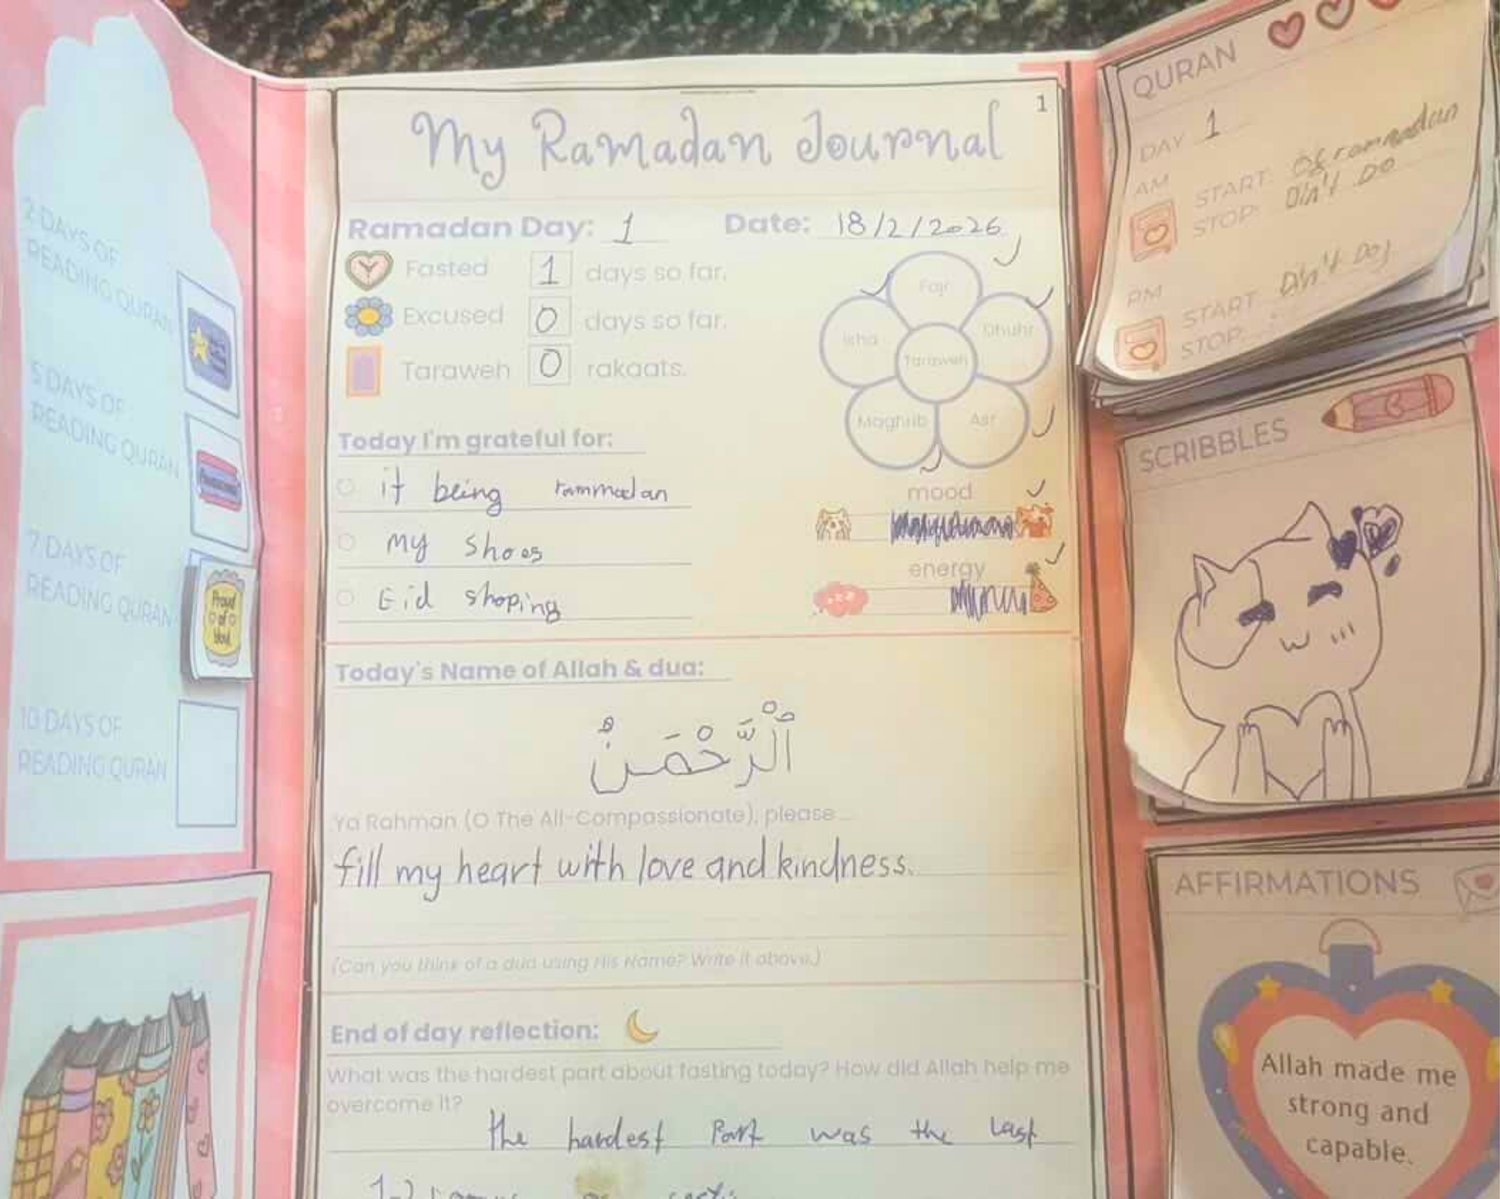 2 DAYS OF
READING QURAN
5 DAYS OF
READING QURAN
7 DAYS OF
READING QURAN
Proud
of
You!
10 DAYS OF
READING QURAN
1
My Ramadan Journal
Ramadan Day: 1 Date: 18/2/2026
Fasted 1 days so far.
Excused 0 days so far.
Taraweh 0 rakaats.
Fajr
Isha
Dhuhr
Taraweh
Maghrib
Asr
Today I'm grateful for:
it being rammadan
my shoes
Eid shoping
mood
energy
Today's Name of Allah & dua:
ٱلْرَّحْمَنُ
Ya Rahman (O The All-Compassionate), please...
fill my heart with love and kindness.
(Can you think of a dua using His Name? Write it above.)
End of day reflection:
What was the hardest part about fasting today? How did Allah help me
overcome it?
the hardest Part was the last
QURAN
DAY 1
AM
START: Of rammadan
STOP: Din't Do
PM
START: Din't Do
STOP:
SCRIBBLES
AFFIRMATIONS
Allah made me
strong and
capable.